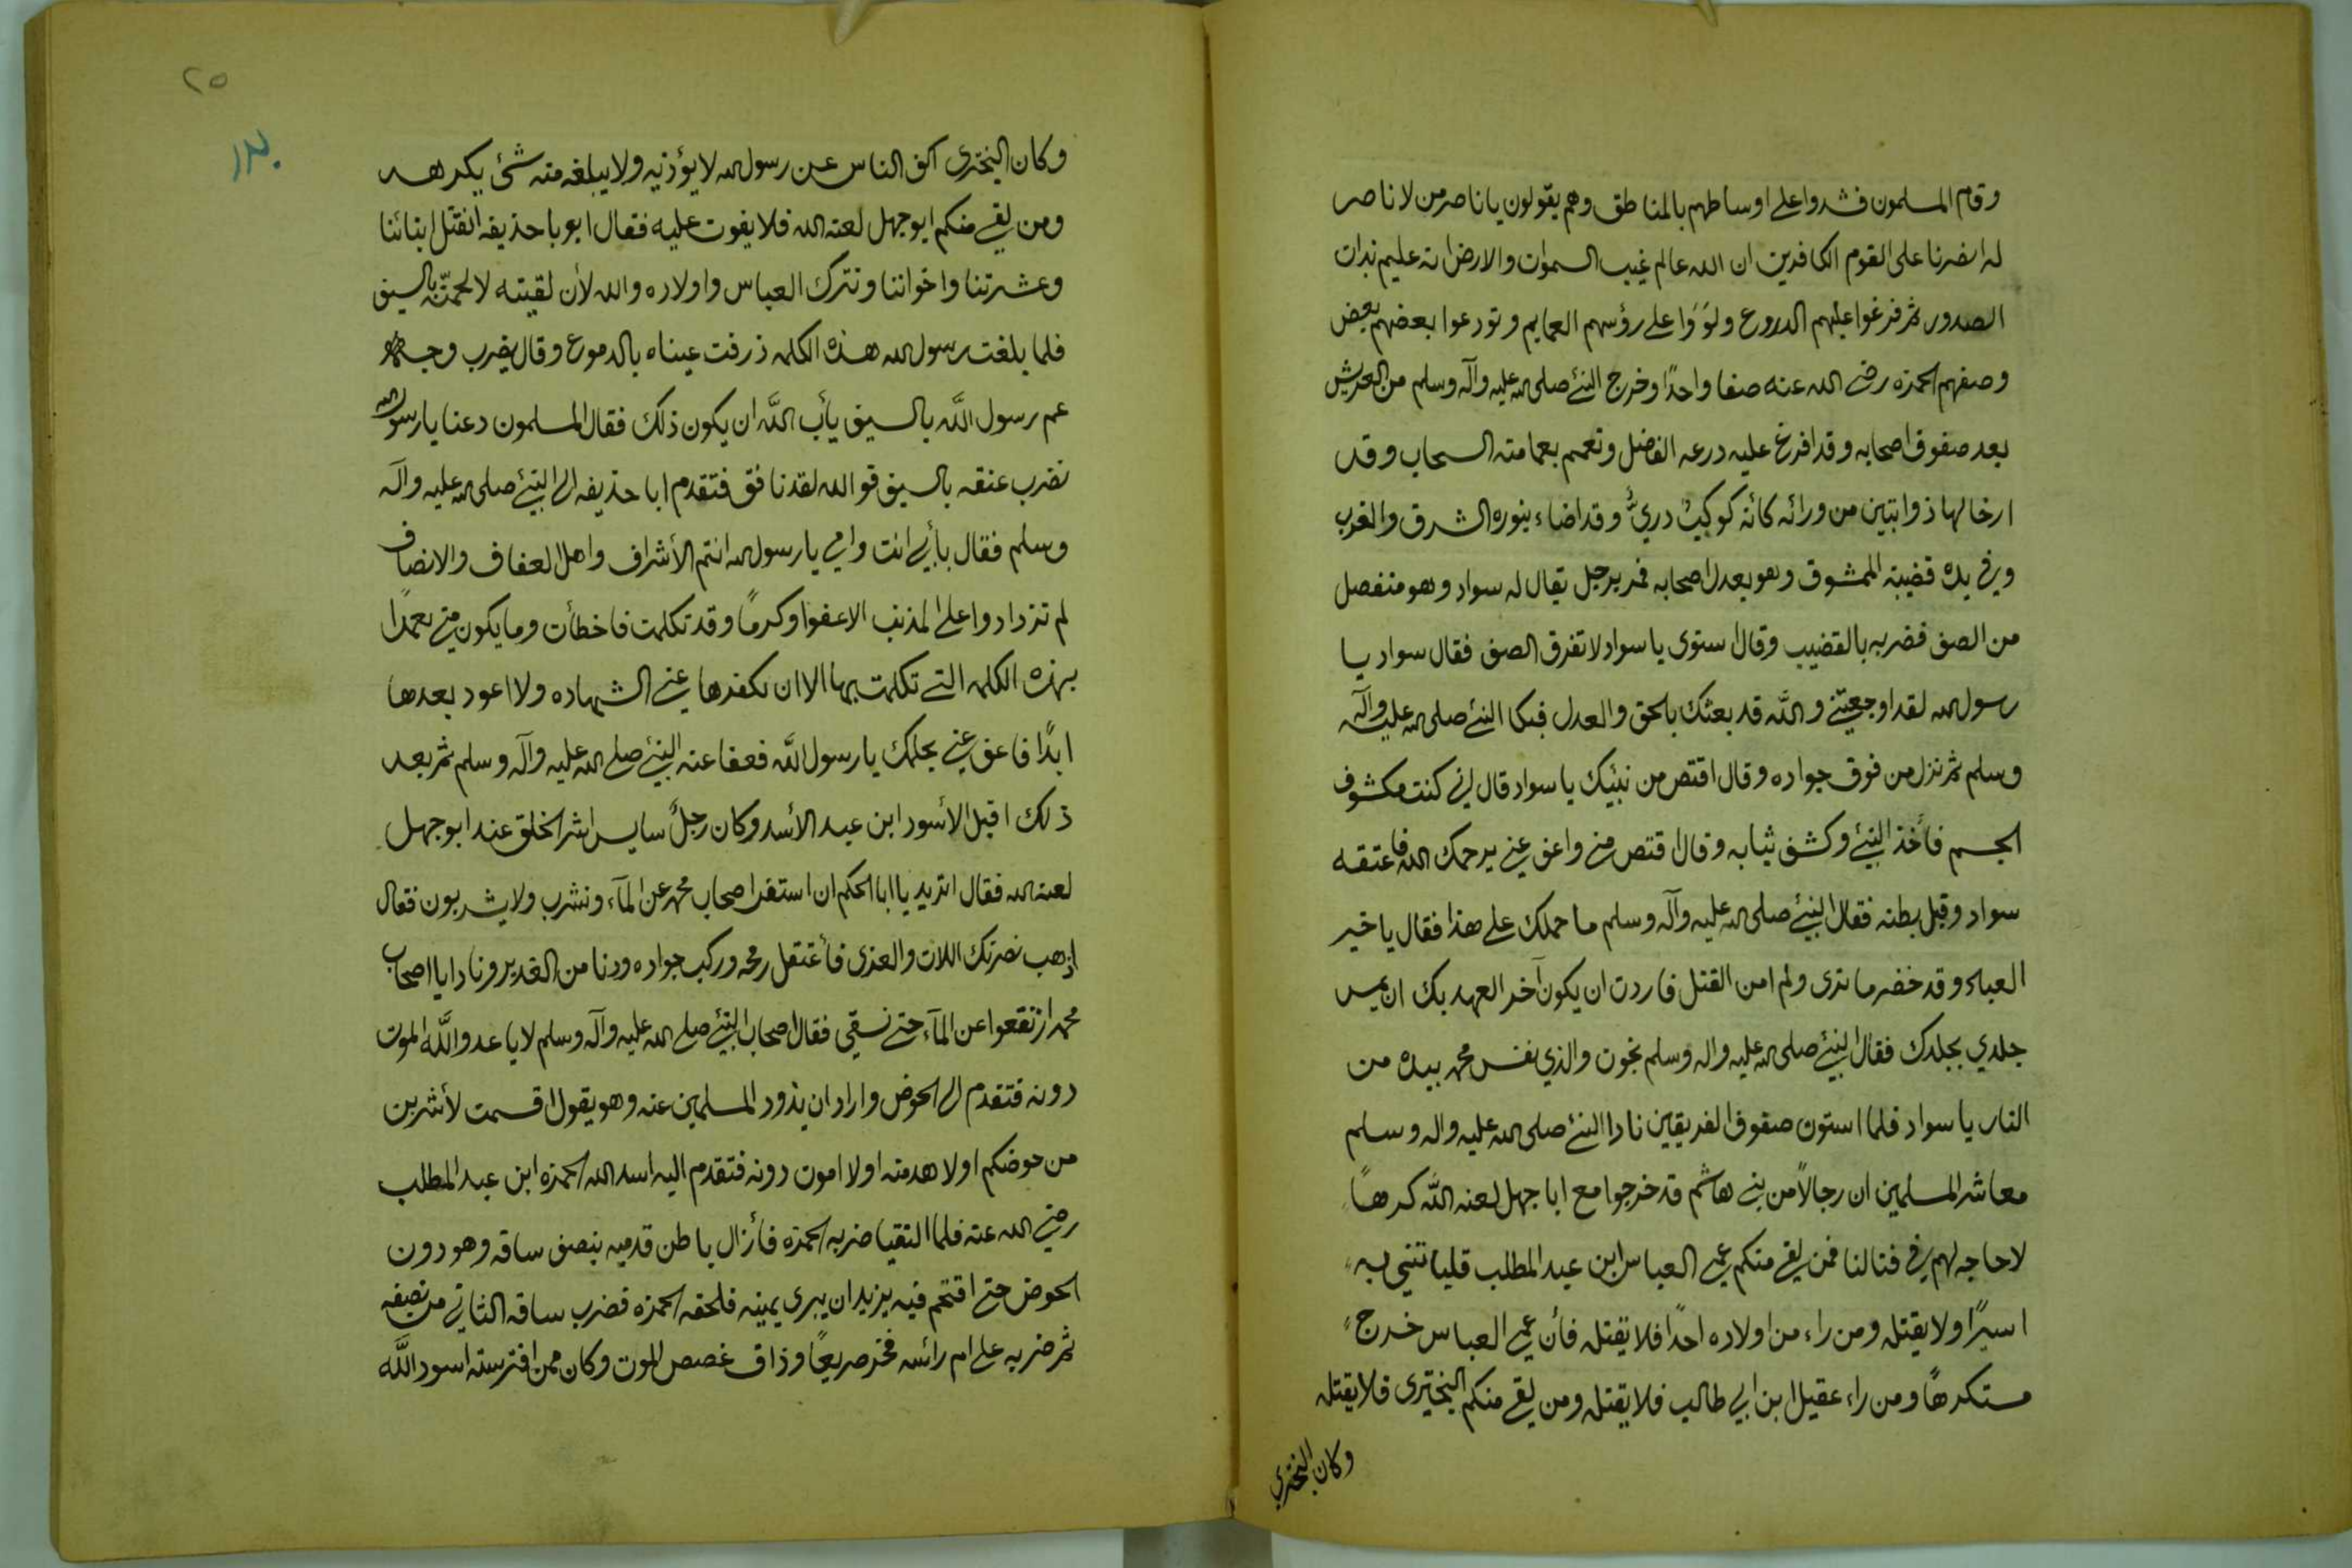 وقام المسلمون فشدوا على اوساطهم بالمناطق وهم يقولون يا ناصر من لا ناصر
له انصرنا على القوم الكافرين ان الله عالم غيب السموات والارض انه عليم بذات
الصدور ثم فرغوا عليهم الدروع ولووا على رؤسهم العمايم وتودعوا بعضهم بعض
وصفهم الحمزه رضي الله عنه صفا واحدًا وخرج النبئ صلى الله عليه وآله وسلم من العريش
يعد صفوف اصحابه وقد افرغ عليه درعه الفاضل وتعمم بعمامته السحاب وقد
ارخا لها ذوابتين من ورائه كأنه كوكبٌ دريٌّ وقد اضاء بنوره الشرق والغرب
وفي يده قضيبه الممشوق وهو يعدل اصحابه فمر برجل يقال له سواد وهو منفصل
من الصف فضربه بالقضيب وقال استوى يا سواد لا تفرق الصف فقال سواد يا
رسول الله لقد اوجعتني والله قد بعثك بالحق والعدل فبكا النبئ صلى الله عليه وآله
وسلم ثم نزل من فوق جواده وقال اقتص من نبيك يا سواد قال اني كنت مكشوف
الجسم فأخذ النبئ وكشف ثيابه وقال اقتص مني واعف عني يرحمك الله فاعتقه
سواد وقبل بطنه فقال النبئ صلى الله عليه وآله وسلم ما حملك على هذا فقال يا خير
العباد وقد حضر ما ترى ولم امن القتل فاردت ان يكون آخر العهد بك ان يمس
جلدي بجلدك فقال النبئ صلى الله عليه واله وسلم نجوت والذي نفس محمد بيده من
النار يا سواد فلما استون صفوف الفريقين نادا النبئ صلى الله عليه واله وسلم
معاشر المسلمين ان رجالاً من بني هاشم قد خرجوا مع ابا جهل لعنه الله كرهاً
لا حاجه لهم في قتالنا فمن لقي منكم عمي العباس ابن عبد المطلب فليأتني به
اسيرًا ولا يقتله ومن راء من اولاده احدًا فلا يقتله فأن عمي العباس خرج
مستكرهًا ومن راء عقيل ابن ابي طالب فلا يقتله ومن لقي منكم البختري فلا يقتله
وكان البختري
٢٥
١٣٠
وكان البختري اكف الناس عن رسول الله لا يؤذيه ولا يبلغه منه شئ يكرهه
ومن لقي منكم ابو جهل لعنه الله فلا يفوت عليه فقال ابو با حذيفه انقتل ابنائنا
وعشرتنا واخواننا ونترك العباس واولاده والله لأن لقيته لا لحمنّه بالسيف
فلما بلغت رسول الله هذه الكلمه ذرفت عيناه بالدموع وقال يضرب وجه
عم رسول الله بالسيف يأب الله ان يكون ذلك فقال المسلمون دعنا يا رسول الله
نضرب عنقه بالسيف فوالله لقد نافق فتقدم ابا حذيفه الى النبئ صلى الله عليه وآله
وسلم فقال بأبي انت وامي يا رسول الله انتم الأشراف واهل العفاف والانصاف
لم تزدادوا على المذنب الا عفوا وكرمًا وقد تكلمت فاخطأت وما يكون مني تعمدًا
بهذه الكلمه التي تكلمت بها الا ان تكفرها عني الشهاده ولا اعود بعدها
ابدًا فاعف عني بحلمك يا رسول الله فعفا عنه النبئ صلى الله عليه وآله وسلم ثم بعد
ذلك اقبل الأسود ابن عبد الأسد وكان رجلً سايس اشر الخلق عند ابو جهل
لعنه الله فقال اتريد يا ابا الحكم ان استفر اصحاب محمد عن المآء ونشرب ولا يشربون فقال
اذهب نصرتك اللات والعزى فأعتقل رمحه وركب جواده ودنا من الغدير ونادا يا اصحاب
محمد ارتفعوا عن المآء حتى نسقي فقال اصحاب النبئ صلى الله عليه وآله وسلم لا يا عدو الله الموت
دونه فتقدم الى الحوض واراد ان يذود المسلمين عنه وهو يقول اقسمت لأشربن
من حوضكم اولا هدمته اولا اموت دونه فتقدم اليه اسد الله الحمزه ابن عبد المطلب
رضي الله عنه فلما التقيا ضربه الحمزه فأزال باطن قدميه بنصف ساقه وهو دون
الحوض حتى اقتحم فيه يزيد ان يبرى يمينه فلحقه الحمزه فضرب ساقه الثاني من نصيفه
ثم ضربه على ام رائسه فخر صريعًا وذاق غصص الموت وكان ممن افترسته اسود الله